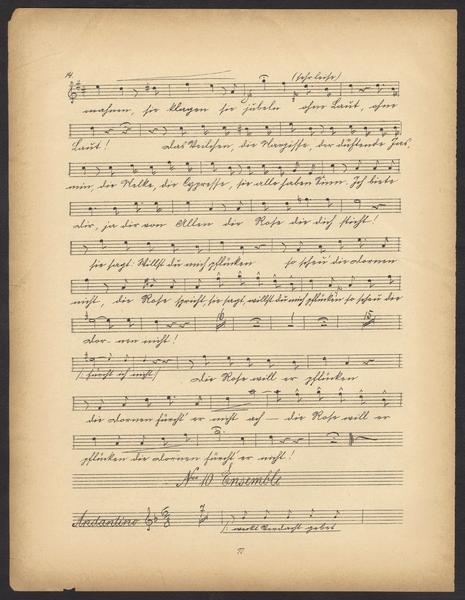 14.
(sehr leise)
mahnen, sie klagen sie jubeln ohne Laut, ohne
Laut! Das Veilchen, die Narzisse, der duftende Jas-
min, die Nelke, die Cypresse, sie alle haben Sinn. Ich biete
dir, ja dir von Allen die Rose die dich sticht!
sie sagt: Willst du mich pflücken so scheu die Dornen
nicht, die Rose spricht, sie sagt, willst du mich pflücken so scheu die
6 15
Dor-nen nicht!
(: fürcht ich nicht :)
Die Rose will er pflücken
die Dornen fürcht' er nicht ach – die Rose will er
pflücken die Dornen fürcht' er nicht!
Nro 10 Ensemble
Andantino